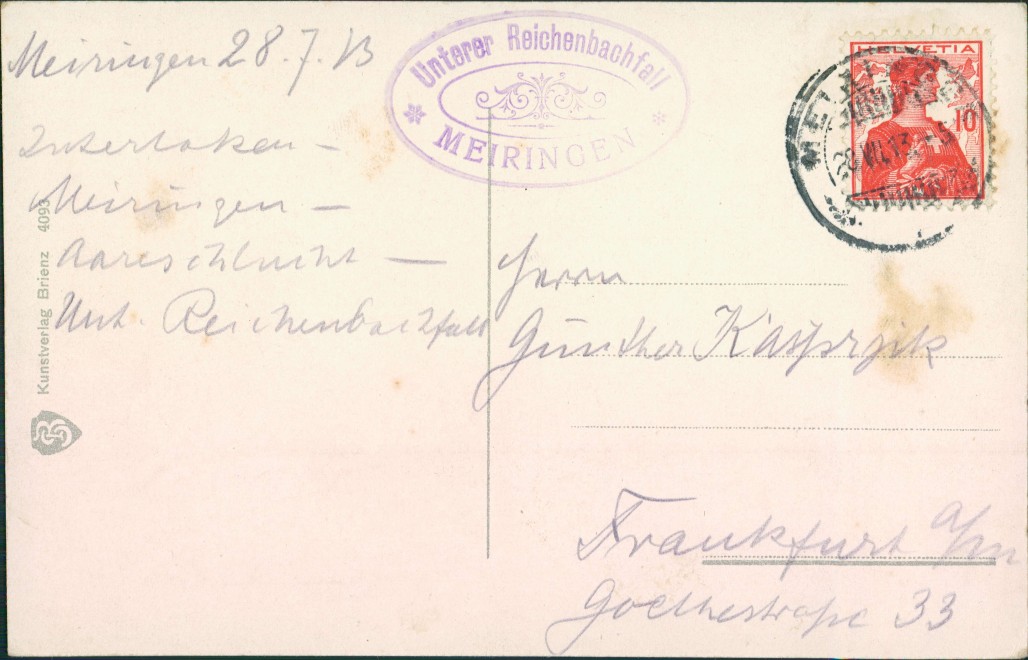 Meiringen 28.7.13
Interlaken –
Meiringen –
Aareschlucht –
Unt. Reichenbachfall
Unterer Reichenbachfall
MEIRINGEN
HELVETIA
10
MEIRINGEN
28.VII.13.
Herrn
Günther Kasprzik
Frankfurt a/M
Goethestraße 33
Kunstverlag Brienz 4093